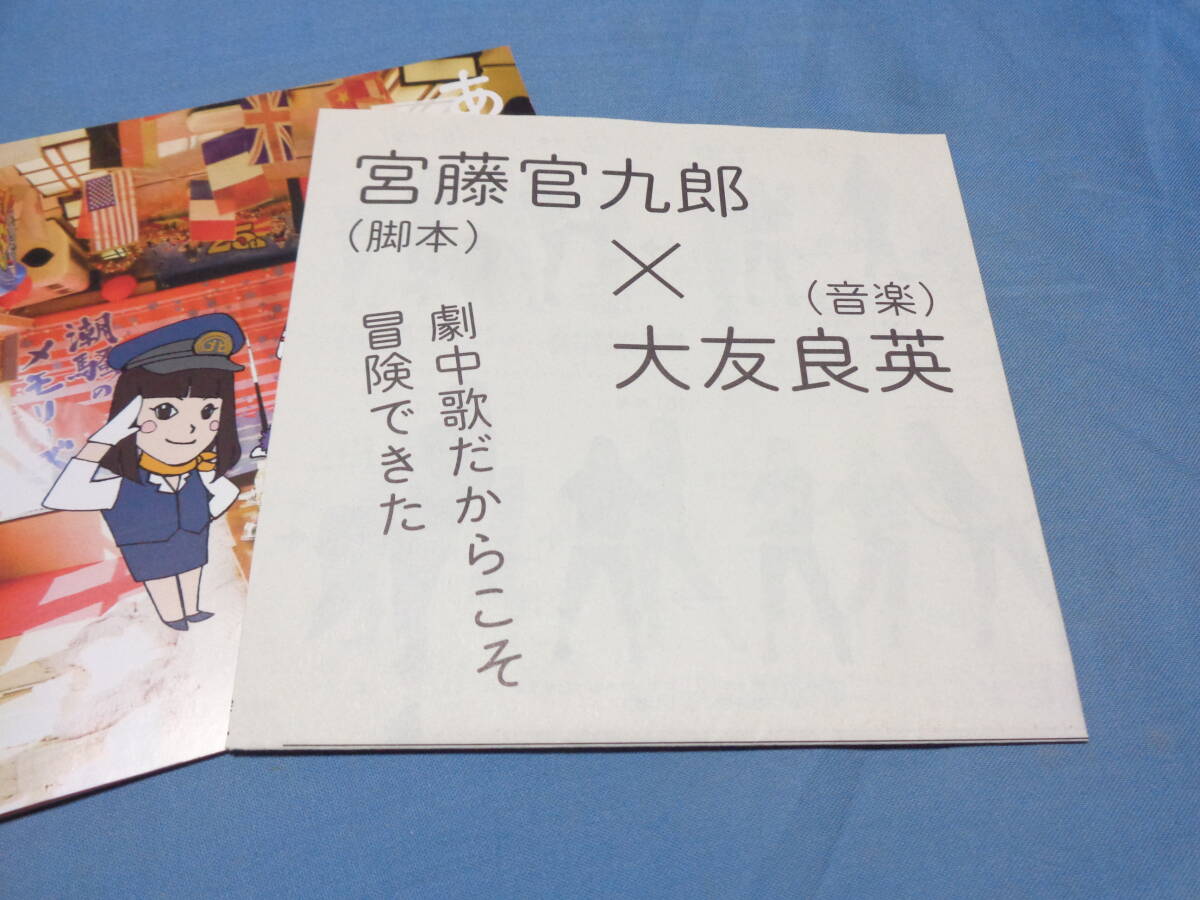 宮藤官九郎
（脚本）
×
（音楽）
大友良英
劇中歌だからこそ
冒険できた
あ
潮騒の
メモリーズ